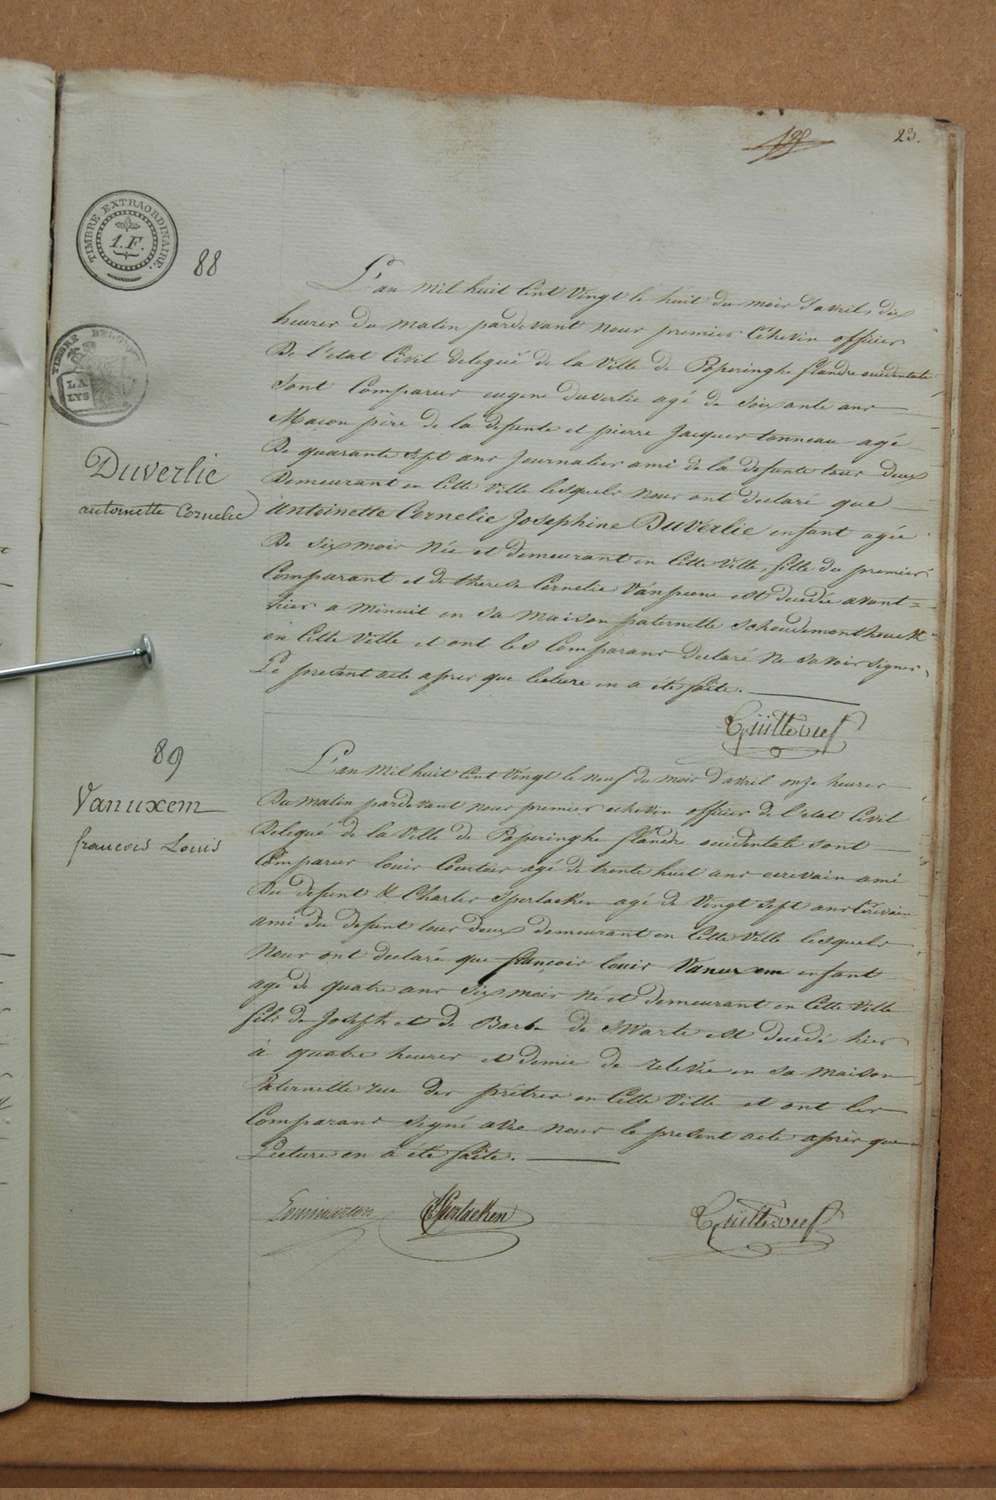 23.
TIMBRE EXTRAORDINAIRE.
1.F.
88
TIMBRE
LA
LYS
Duverlie
antoinette Cornelie
L'an mil huit Cent Vingt le huit du mois d'avril, dix
heures du matin pardevant nous premier Echevin officier
De l'etat Civil delegué de la Ville de Poperinghe flandre occidentale
Sont Comparus eugene duverlie agé de Soixante ans
Macon père de la defunte et pierre Jacques tonneau agé
De quarante Sept ans Journalier ami de la defunte tous deux
Demeurant en Cette Ville lesquels nous ont declaré que
Antoinette Cornelie Josephine Duverlie enfant agée
De Six mois Née et demeurant en Cette Ville, fille du premier
Comparant et de therese Cornelie est decedée avant=
hier a minuit en Sa maison paternelle
en Cette Ville et ont les Comparans declaré Ne Savoir Signer
Le present acte apres que lecture en a été faite.
89
Vanuxem
francois Louis
L'an mil huit Cent Vingt le neuf du mois d'avril onze heures
Du matin pardevant nous premier echevin officier De l'etat Civil
Delegué de la Ville de Poperinghe flandre occidentale Sont
Comparus louis agé de trente huit ans ecrivain ami
Du defunt & Charles Sperlaeken agé de Vingt Sept ans Ecrivain
ami du defunt tous deux demeurant en Cette Ville lesquels
Nous ont declaré que françois louis Vanuxem enfant
agé de quatre ans Six mois Né et demeurant en Cette Ville
fils de Joseph et de Barbe de Swarte est decedé hier
à quatre heures et demie de relevée en Sa maison
Paternelle rue des prêtres en Cette Ville et ont les
Comparans Signé avec nous le present acte après que
Lecture en a été faite.
Sperlaeken